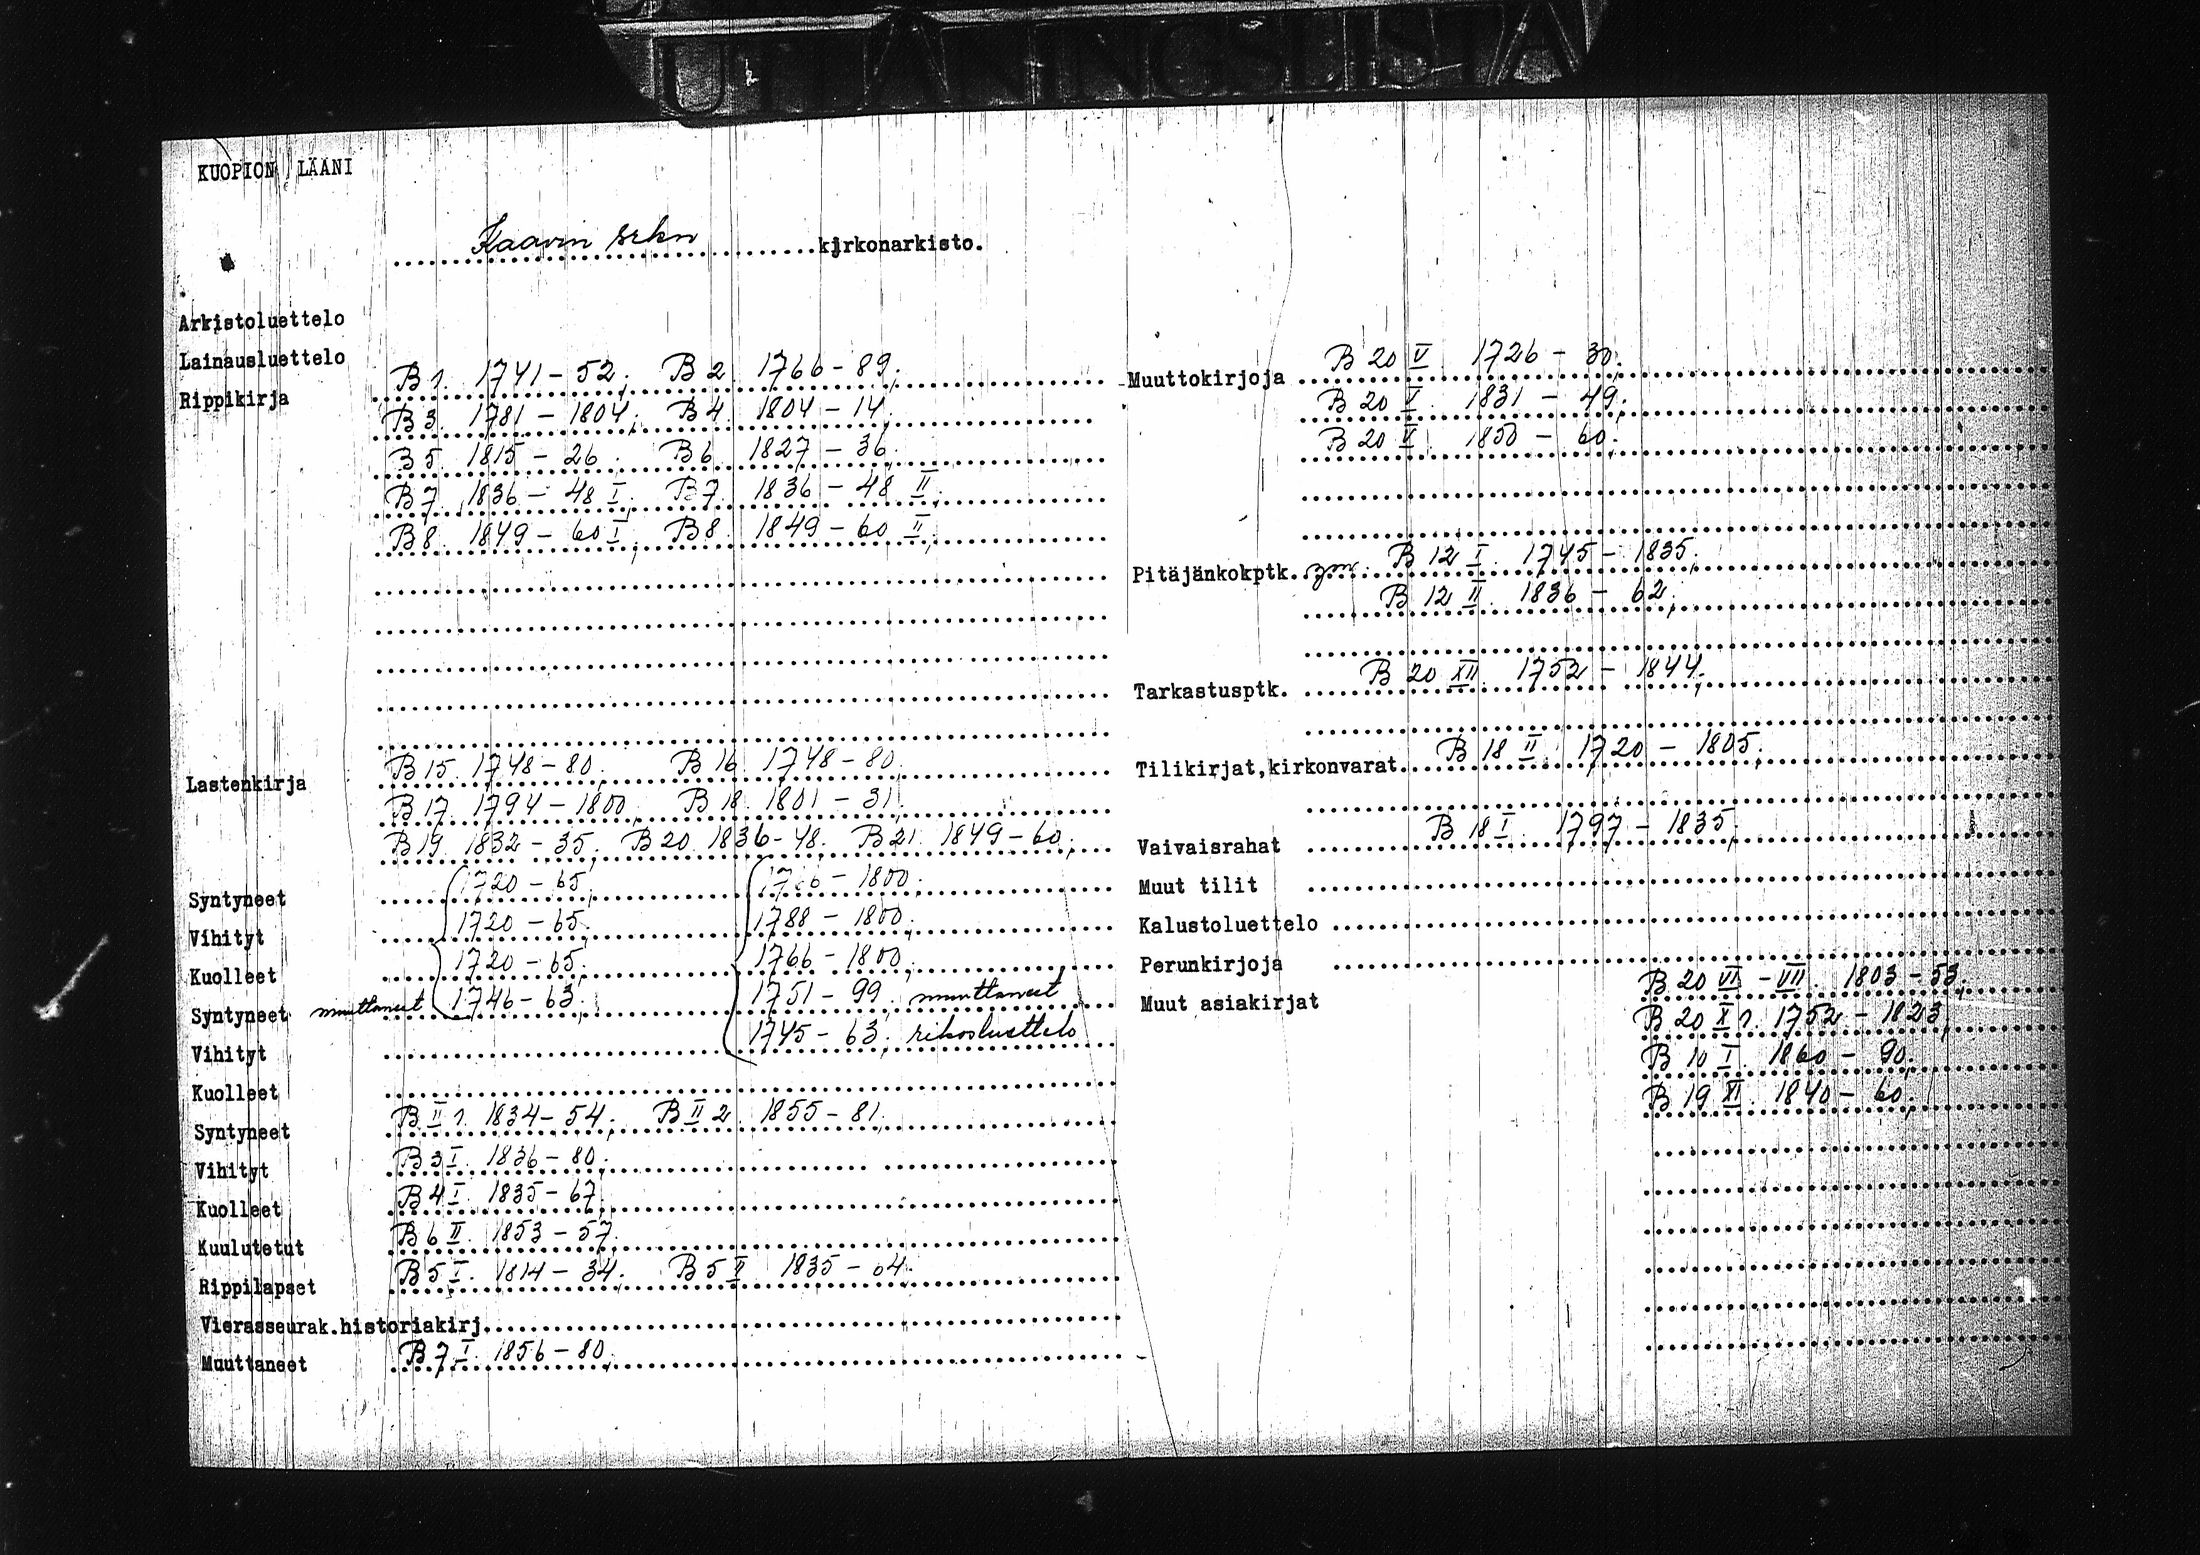 KUOPION LÄÄNI
Kaavin srkn kirkonarkisto.
Arkistoluettelo
Lainausluettelo
Rippikirja B 1. 1741 - 52; B 2. 1766 - 89;
B 3. 1781 - 1804; B 4. 1804 - 14;
B 5. 1815 - 26; B 6. 1827 - 36;
B 7. 1836 - 48 I; B 7. 1836 - 48 II;
B 8. 1849 - 60 I; B 8. 1849 - 60 II;
Lastenkirja B 15. 1748 - 80; B 16. 1748 - 80;
B 17. 1794 - 1800; B 18. 1801 - 31;
B 19. 1832 - 35; B 20. 1836 - 48; B 21. 1849 - 60;
Syntyneet 1720 - 65; - 1800;
Vihityt 1720 - 65; 1788 - 1800;
Kuolleet 1720 - 65; 1766 - 1800;
Syntyneet muuttaneet 1746 - 63; 1751 - 99; muuttaneet
Vihityt 1745 - 63; rikosluettelo
Kuolleet
Syntyneet B II 1. 1834 - 54; B II 2. 1855 - 81;
Vihityt B 3 I. 1836 - 80;
Kuolleet B 4 I. 1835 - 67;
Kuulutetut B 6 II. 1853 - 57.
Rippilapset B 5 I. 1814 - 34; B 5 II 1835 - 64.
Vierasseurak.historiakirj.
Muuttaneet B 7 I. 1856 - 80;
Muuttokirjoja B 20 V 1726 - 30;
B 20 I. 1831 - 49;
B 20 II. 1850 - 60;
Pitäjänkokptk. ym. B 12 I. 1745 - 1835;
B 12 II. 1836 - 62;
Tarkastusptk. B 20 XII. 1752 - 1844;
Tilikirjat,kirkonvarat. B 18 II. 1720 - 1805;
Vaivaisrahat B 18 I. 1797 - 1835;
Muut tilit
Kalustoluettelo
Perunkirjoja
Muut asiakirjat B 20 VI - VII. 1803 - 53;
B 20 X 1. 1752 - 1823;
B 10 I. 1860 - 90;
B 19 XI. 1840 - 60;